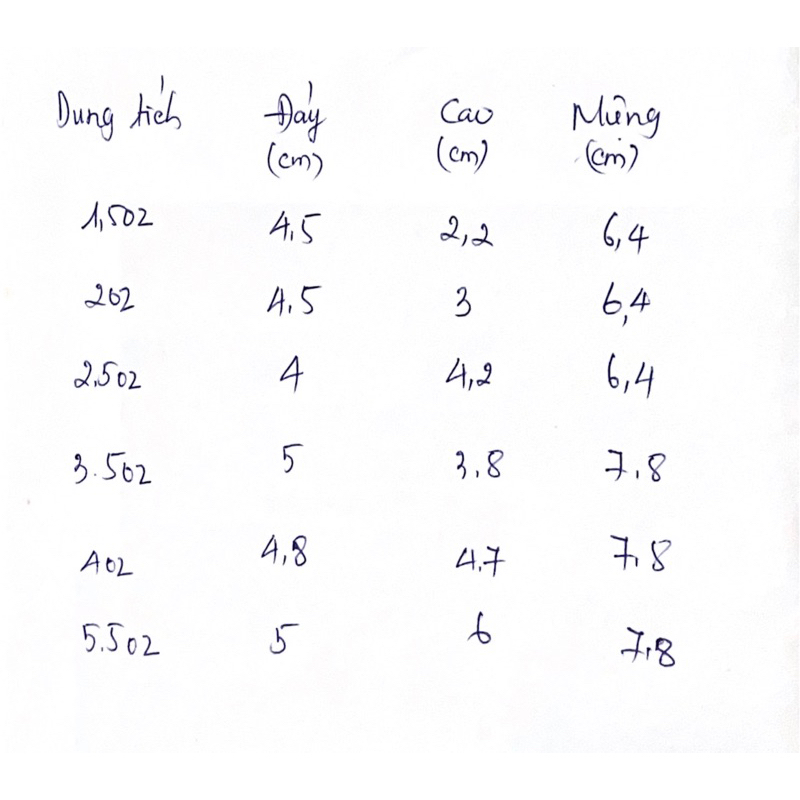 Dung tích Đáy Cao Miệng
(cm) (cm) (cm)
1,5oz 4,5 2,2 6,4
2oz 4.5 3 6,4
2.5oz 4 4,2 6,4
3.5oz 5 3,8 7.8
4oz 4,8 4.7 7.8
5.5oz 5 6 7,8